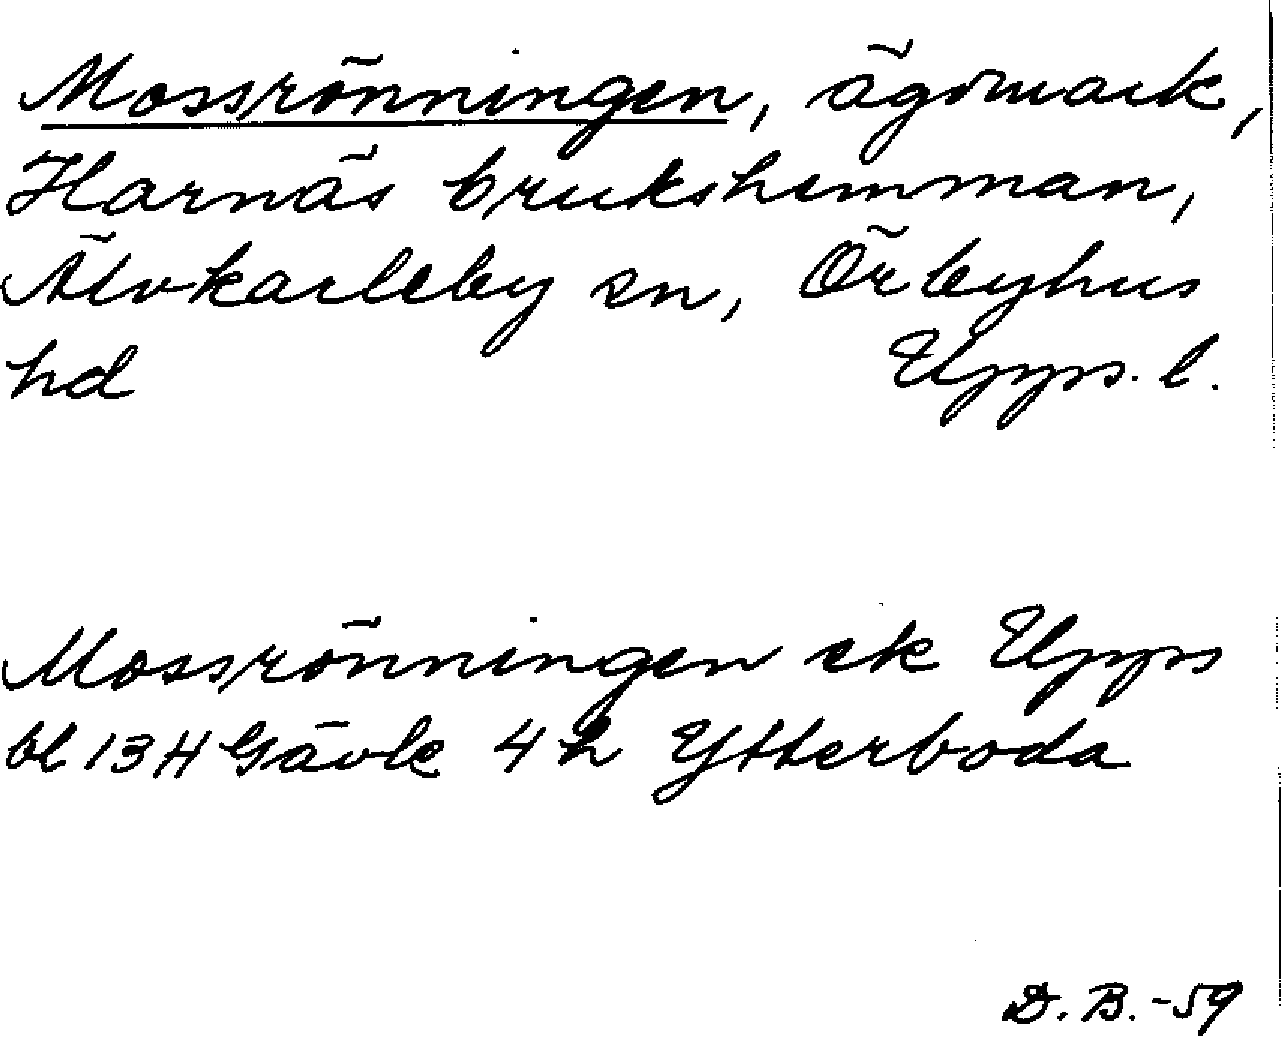 Mossrönningen, ägomark,
Harnäs brukshemman,
Älvkarleby sn, Örbyhus
hd Upps. l.
Mossrönningen ek Upps
bl 13 H Gävle 4 h Ytterboda
D. B. -59